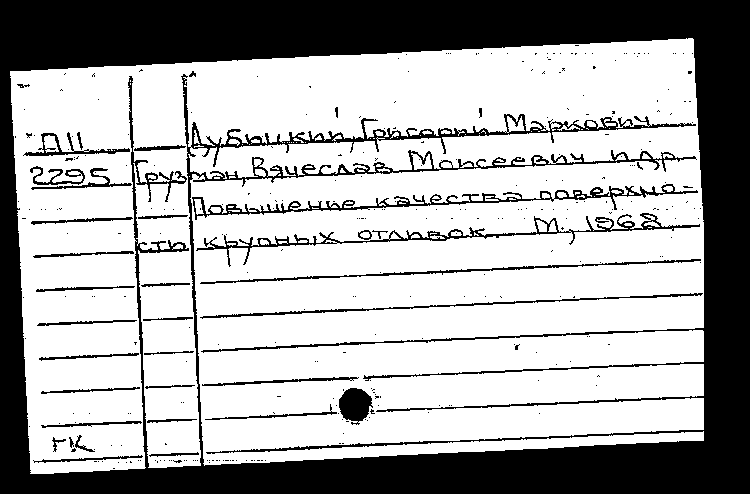 Д11 Дубицкий, Григорий Маркович
2295 Грузман, Вячеслав Моисеевич и др.
Повышение качества поверхно-
сти крупных отливок. М., 1962.
ГК